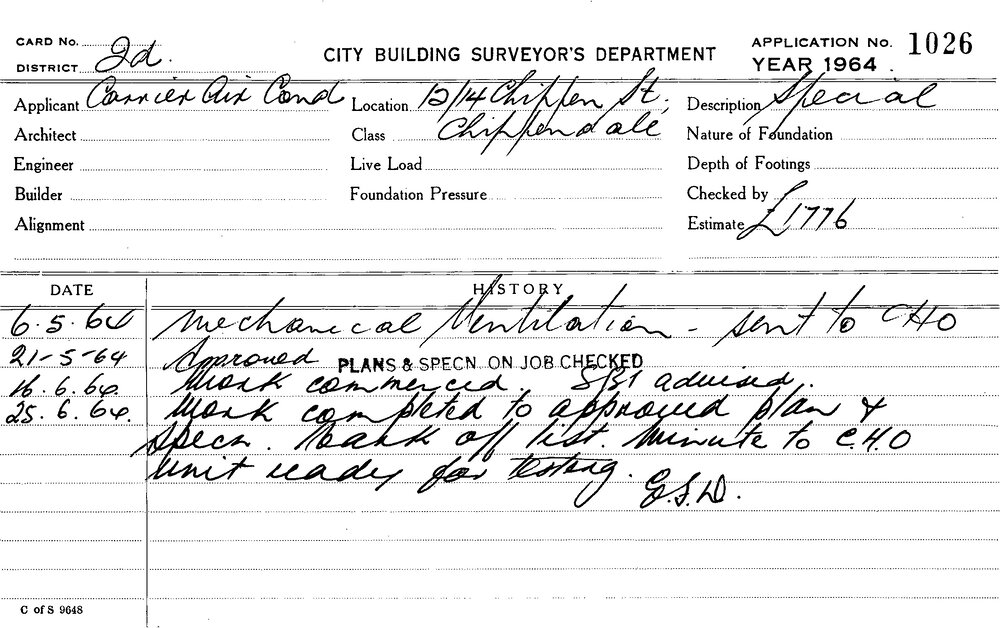 CARD No.
DISTRICT 2d.
CITY BUILDING SURVEYOR'S DEPARTMENT
APPLICATION No. 1026
YEAR 1964 .
Applicant Carrier Air Cond Location 12/14 Chippen St, Description Special
Architect Class Chippendale Nature of Foundation
Engineer Live Load Depth of Footings
Builder Foundation Pressure Checked by
Alignment Estimate £1776
DATE HISTORY
6.5.64 Mechanical Ventilation - sent to CHO
21-5-64 Approved PLANS & SPECN. ON JOB CHECKED
16.6.64. Work commenced. advised.
25.6.64. Work completed to approved plan &
specn. Mark off list. Minute to C.H.O
unit ready for testing.
C of S 9648